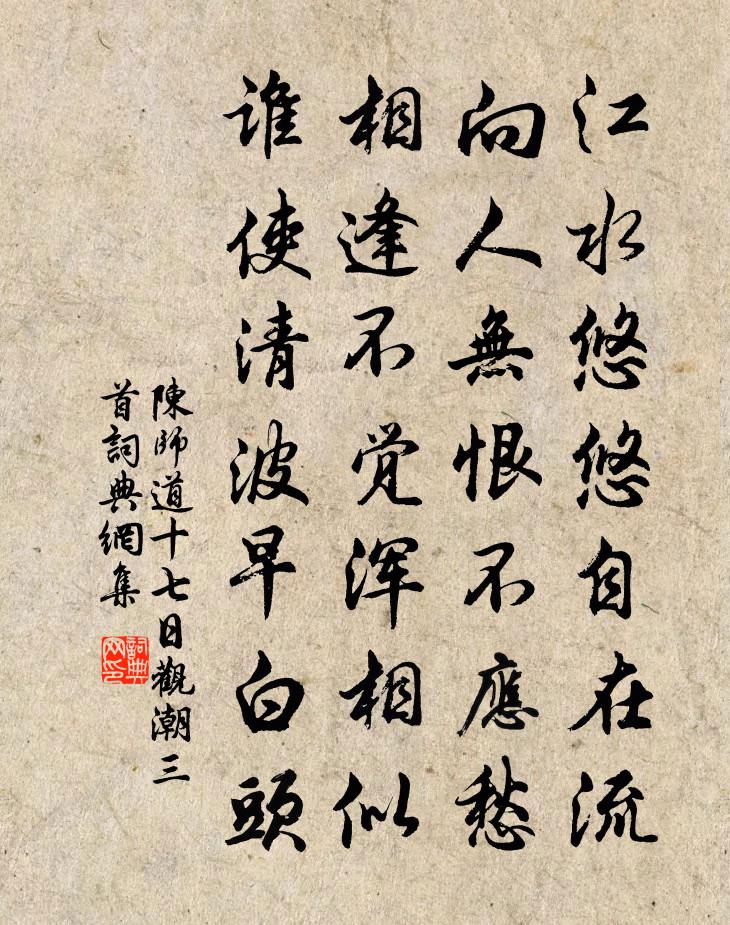 江水悠悠自在流
向人無恨不應愁
相逢不觉浑相似
谁使清波早白頭
陳師道十七日觀潮三
首詞典網集
詞典
网印